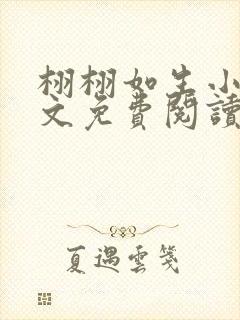 栩栩如生小
文免費閱讀
夏遇雲箋